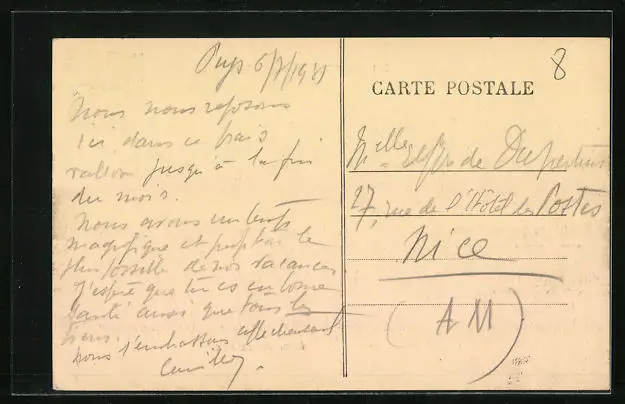 Puys 6/7/1931
Nous nous reposons
ici dans ce frais
vallon jusqu'à la fin
du mois.
Nous avons un temps
magnifique et profitons le
plus possible de nos vacances
J'espère que tu es en bonne
santé ainsi que tous les
tiens.
nous t'embrassons affectueusement
8
CARTE POSTALE
Melle de
27, rue de l'Hôtel des Postes
Nice
(AM)